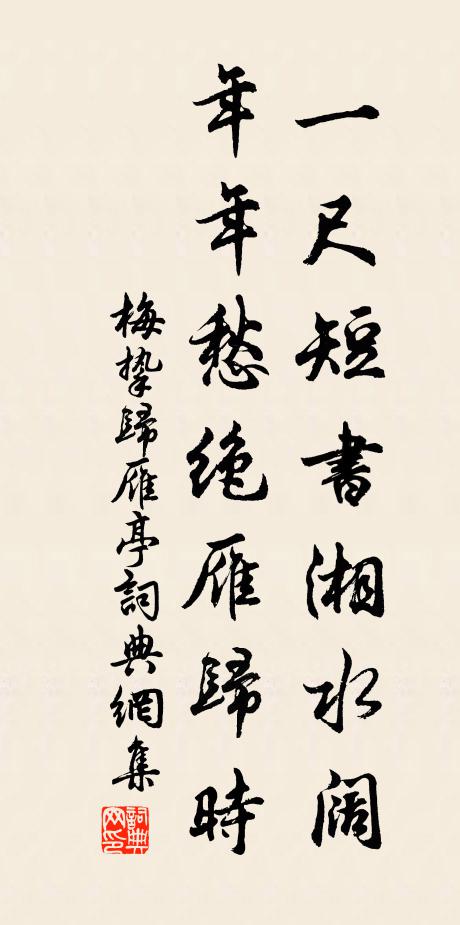 一尺短書湘水阔
年年愁绝雁歸時
梅摯歸雁亭詞典網集
詞典網印